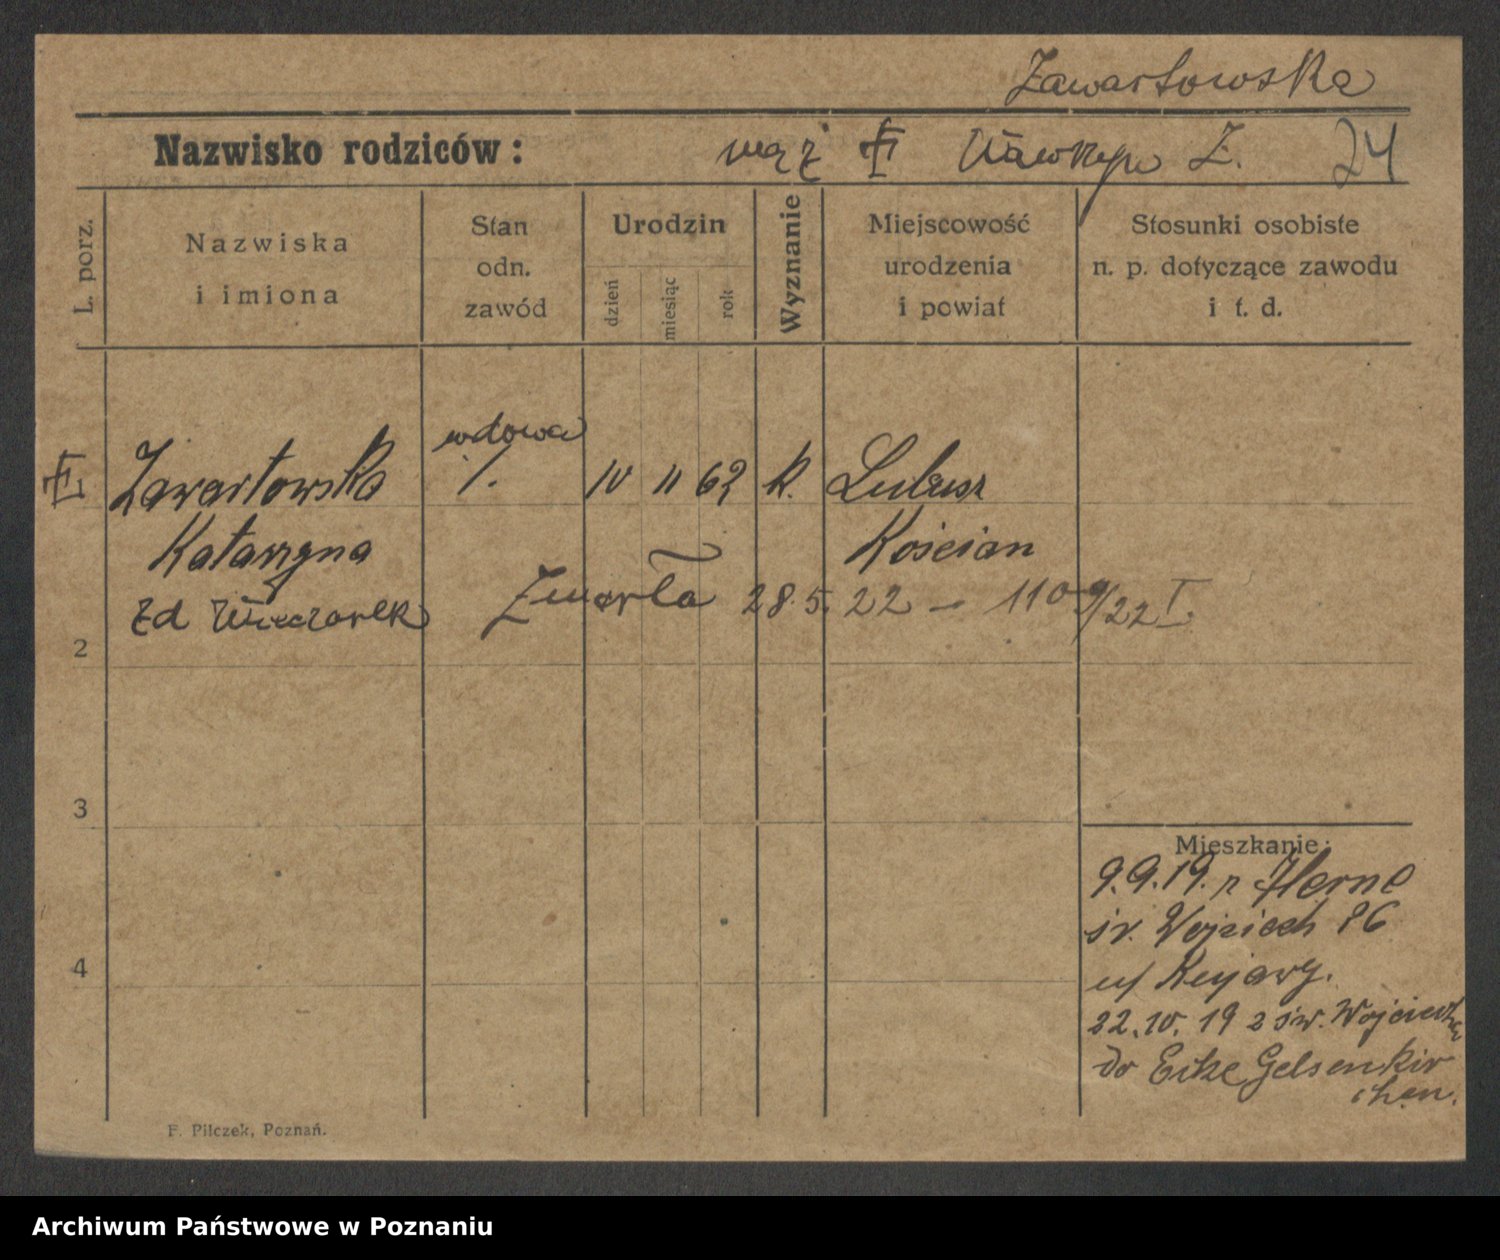 Zawartowska
Nazwisko rodziców :
mąż Wawrzyn Z. 24
L. porz.
Nazwiska
i imiona
Stan
odn.
zawód
Urodzin
dzień
miesiąc
rok
Wyznanie
Miejscowość
urodzenia
i powiat
Stosunki osobiste
n. p. dotyczące zawodu
i t. d.
wdowa
Zawartowska /. 10 11 62 k. Lubusz
Katarzyna Kościan
zd Wieczorek
Zmarła 28.5.22 — 1109/22 I.
2
3
4
Mieszkanie:
9.9.19. z Herne
św. Wojciech 26
u/ Kujawy.
22.10.19 z św. Wojciecha
do Eike Gelsenkir
chen.
F. Pilczek, Poznań.
Archiwum Państwowe w Poznaniu